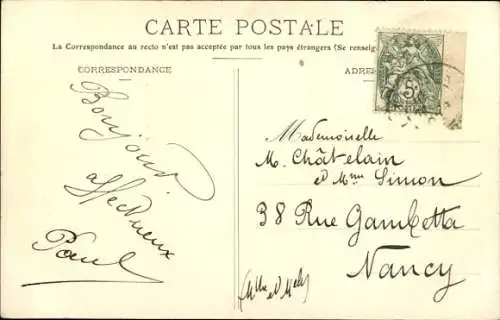 CARTE POSTALE
La Correspondance au recto n'est pas acceptée par tous les pays étrangers (Se renseig
CORRESPONDANCE
ADRE
5
Bonjour
affectueux
Paul
Mademoiselle
M. Châtelain
et Mme Simon
38 Rue Gambetta
Nancy
(Mlle et